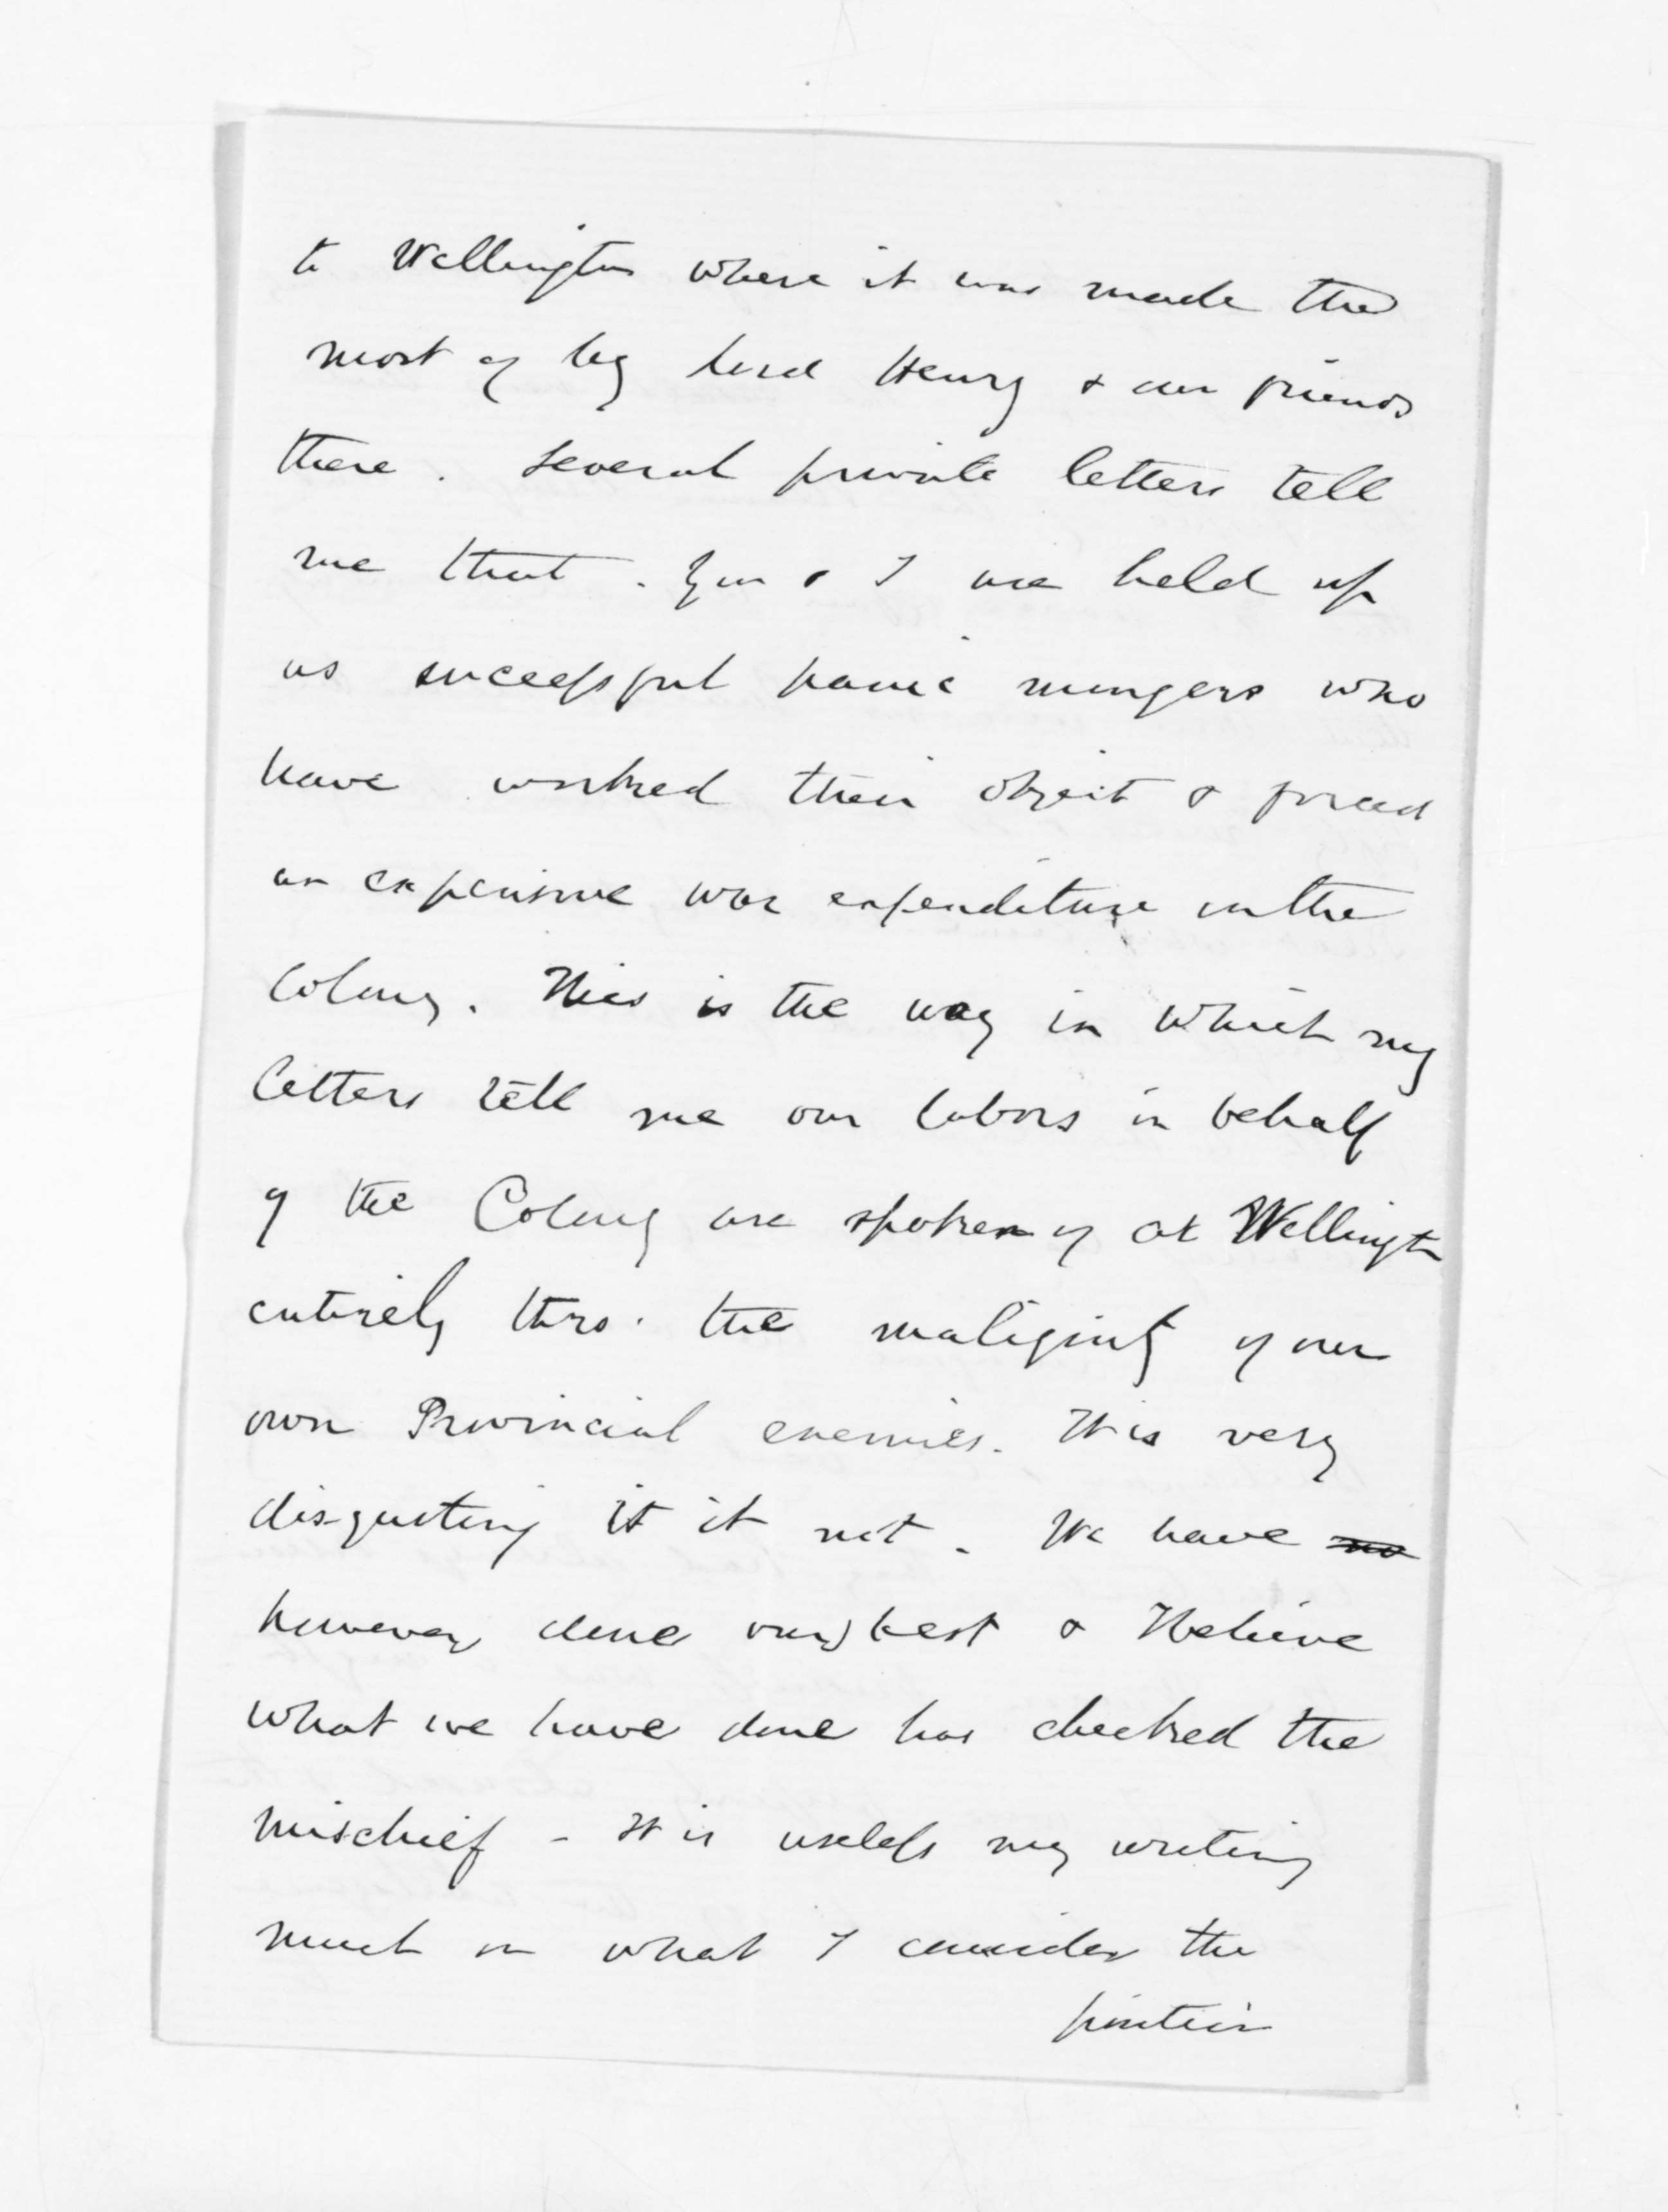 to Wellington where it was made the
most of by Lord Henry & our friends
there. Several private letters tell
me that. You & I are held up
as successful panic mongers who
have worked their object & forced
an expensive war expenditure in the
Colony. This is the way in which my
letters tell me our labors in behalf
of the Colony are spoken of at Wellington
entirely thro' the malignity of our
own Provincial enemies. It is very
disgusting is it not. We have no
however done our best & I believe
what we have done has checked the
mischief - It is useless my writing
much on what I consider the
position